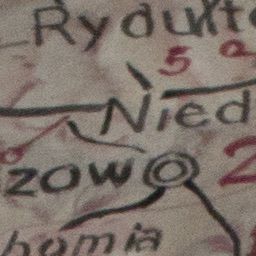 Rydułt
5
Nied
zow 2
homia